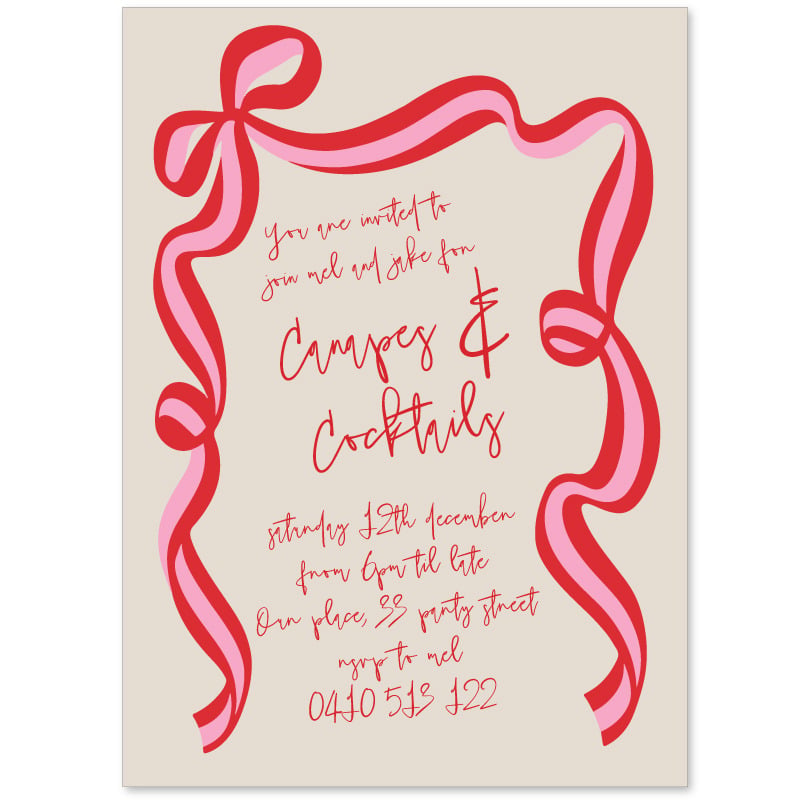 You are invited to
join mel and jake for
Canapes &
Cocktails
saturday 12th december
from 6pm til late
Our place, 33 party street
rsvp to mel
0410 513 122